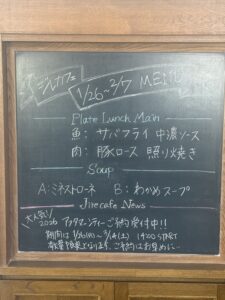 ジルカフェ
1/26~2/7 MENU
Plate Lunch Main
魚: サバフライ 中濃ソース
肉: 豚ロース 照り焼き
Soup
A: ミネストローネ B: わかめスープ
Jire cafe News
大人気!!
2026 アフタヌーンティーご予約受付中!!
期間は 1/26(月)~3/14(土) 14:00 START
数量限定となります。ご予約はお早めに…